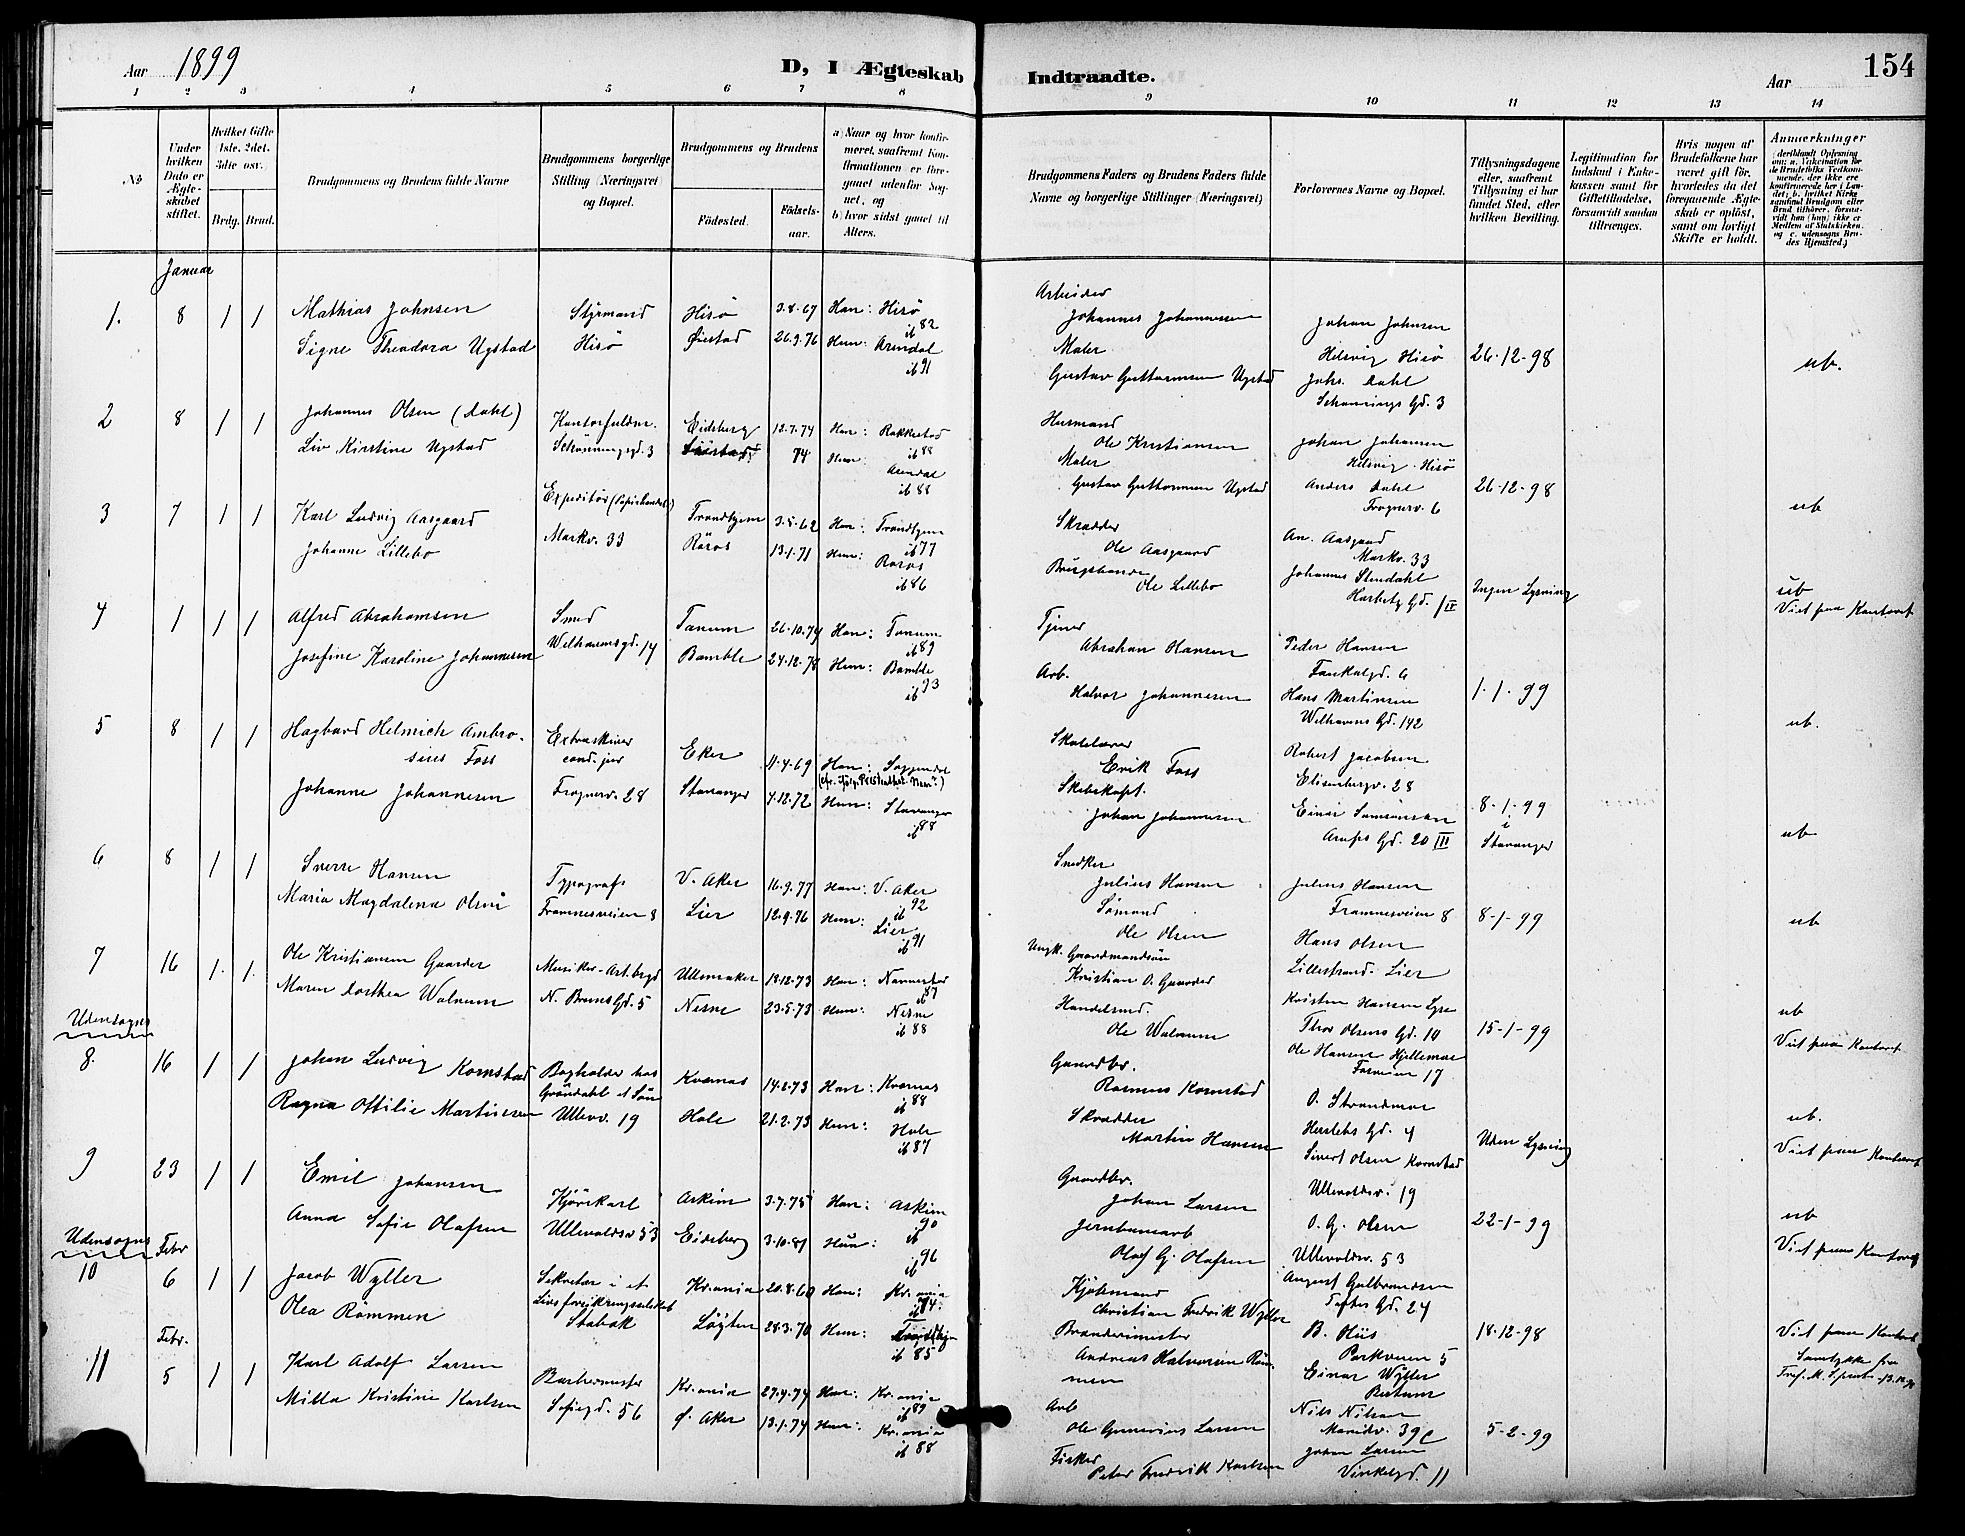 Aar 1899
D, I Ægteskab Indtraadte.
Aar
154
1 2 3 4 5 6 7 8 9 10 11 12 13 14
No
Under hvilken Dato er Ægteskabet stiftet.
Hvilket Gifte 1ste, 2det, 3die osv.
Brdg. Brud.
Brudgommens og Brudens fulde Navne
Brudgommens borgerlige Stilling (Næringsvei) og Bopæl.
Brudgommens og Brudens
Födested.
Födsels-aar.
a) Naar og hvor konfirmeret, saafremt Konfirmationen er foregaaet udenfor Sognet, og
b) hvor sidst gaaet til Alters.
Brudgommens Faders og Brudens Faders fulde Navne og borgerlige Stillinger (Næringsvei)
Forlovernes Navne og Bopæl.
Tillysningsdagene eller, saafremt Tillysning ei har fundet Sted, efter hvilken Bevilling.
Legitimation for Indskud i Enkekassen samt for Giftetilladelse, forsaavidt saadan tiltrænges.
Hvis nogen af Brudefolkene har været gift för, hvorledes da det foregaaende Ægteskab er oplöst, samt om lovligt Skifte er holdt.
Anmærkninger
Januar
1. 8 1 1
Mathias Johnsen
Signe Theodora Ugstad
Styrmand
Hisö
Hisö 3.8.67 Han: Hisö ib 82
Øiestad 26.9.76 Hun: Arendal ib 91
Arbeider
Johannes Johannessen
Maler
Gustav Guttormsen Ugstad
Johan Johnsen
Helsvig Hisö
Johs. Dahl
Schønnings Gd. 3
26-12-98
ub.
2 8 1 1
Johannes Olsen (Dahl)
Liv Kirstine Ugstad
Kontorfuldm.
Schønningsgd. 3
Eidsberg 12.7.74 Han: Rakkestad ib 88
74 Hun: Arendal ib 88
Husmand
Ole Kristiansen
Maler
Gustav Guttormsen Ugstad
Johan Johansen
Helsvig Hisö
Anders Dahl
Frognerv. 6
26-12-98
ub
3 7 1 1
Karl Ludvig Aasgaard
Johanne Lillebo
Markv. 33
Trondhjem 3.5.62 Han: Trondhjem ib 77
Röros 13.1.71 Hun: Röros ib 86
Skrædder
Ole Aasgaard
Ole Lillebo
An. Aasgaard
Markv. 33
Johannes Stendahl
Ingen Lysning
ub
Viet paa Kontoret
4 1 1 1
Alfred Abrahamsen
Josefine Karoline Johannesen
Smed
Welhavensgd. 14
Tanum 26.10.74 Han: Tanum ib 89
Bamble 24.12.78 Hun: Bamble ib 93
Tjener
Abraham Hansen
Arb.
Halvor Johannesen
Peder Hansen
Hans Martinsen
Welhavens Gd. 142
1.1.99
ub.
5 8 1 1
Hagbard Helmich Ambrosius Foss
Johanne Johannesen
cand. jur
Frognerv. 28
Eker 11.4.69 Han:
Stavanger 4.12.72 Hun: Stavanger ib 88
Skolelærer
Erik Foss
Skibskapt.
Johan Johannesen
Robert Jacobsen
Elisenbergv. 28
Einar
Gd. 20 III
8-1-99 i Stavanger
ub
6 8 1 1
Sverre Hansen
Maria Magdalena Olsen
Typograf
Framnesveien 8
V. Aker 16.9.77 Han: V. Aker ib 92
Lier 12.9.76 Hun: Lier ib 91
Snedker
Julius Hansen
Sömand
Ole Olsen
Julius Hansen
Framnesveien 8
Hans Olsen
Lillestrand. Lier
8-1-99
ub
7 16 1. 1.
Ole Kristiansen Gaarder
Maren Dorthea Walnum
N. Bruns Gd. 5
Ullensaker 13.12.73 Han: Nannestad ib 87
Nesne 23.5.73 Hun: Nesne ib 88
Ungk. Gaardmandssön
Kristian O. Gaarder
Handelsmd.
Ole Walnum
Kristen Hansen
Thor Olsens Gd. 14
Ole Hansen
17
15-1-99
ub
Viet paa Kontoret
Udensogns
8. 16 1 1
Johan Ludvig Kornstad
Ragna Ottilie Martinsen
Bogholder hos Gröndahl & Sön
Ullevv. 19
Kværnes 14.2.73 Han: Kværnes ib 88
Hole 21.2.73 Hun: Hole ib 87
Gaardbr.
Rasmus Kornstad
Skrædder
Martin Hansen
O. Strandmoe
Herslebs Gd. 4
Sivert Olsen Kornstad
Ullevoldsv. 19
Uden Lysning
ub.
Viet paa Kontoret
9 23 1 1
Emil Johansen
Anna Sofie Olafsen
Kjörekarl
Ullevoldsv 53
Askim 3.7.75 Han: Askim 90
Eidsberg 3.10.81 Hun: ib 96
Gaardbr.
Johan Larsen
Jernbanearb
Olaf G. Olafsen
O. G. Olsen
Ullevoldsv. 53
August Gulbrandsen
Toftes Gd. 24
22-1-99
ub
Viet paa Kontoret
Udensogns
Febr
10 6 1 1
Jacob Wyller
Olea Römmen
Sekretær i et Livsforsikringsselskab
Stabæk
Kr.ania 20.8.60 Han: Kr.ania ib 74.
Löiten 28.3.70 Hun: ib 85
Kjöbmand
Christian Fredrik Wyller
Andreas Halvorsen Römmen
B. Hiis
Parkveien 5
Einar Wyller
Bærum
18-12-98
Viet paa Kontoret
Samtykke fra
Febr.
11 5 1 1
Karl Adolf Larsen
Milla Kristine Karlsen
Barbermester
Sofiegd. 56
Kr.ania 27.9.74 Han: Kr.ania ib 89
Ø. Aker 13.1.74 Hun: Kr.ania ib 88
Arb
Ole Gunerius Larsen
Fisker
Peter Fredrik Karlsen
Nils Nilsen
Maridv. 39c
Johan Larsen
Vinkelgd. 11
5-2-99